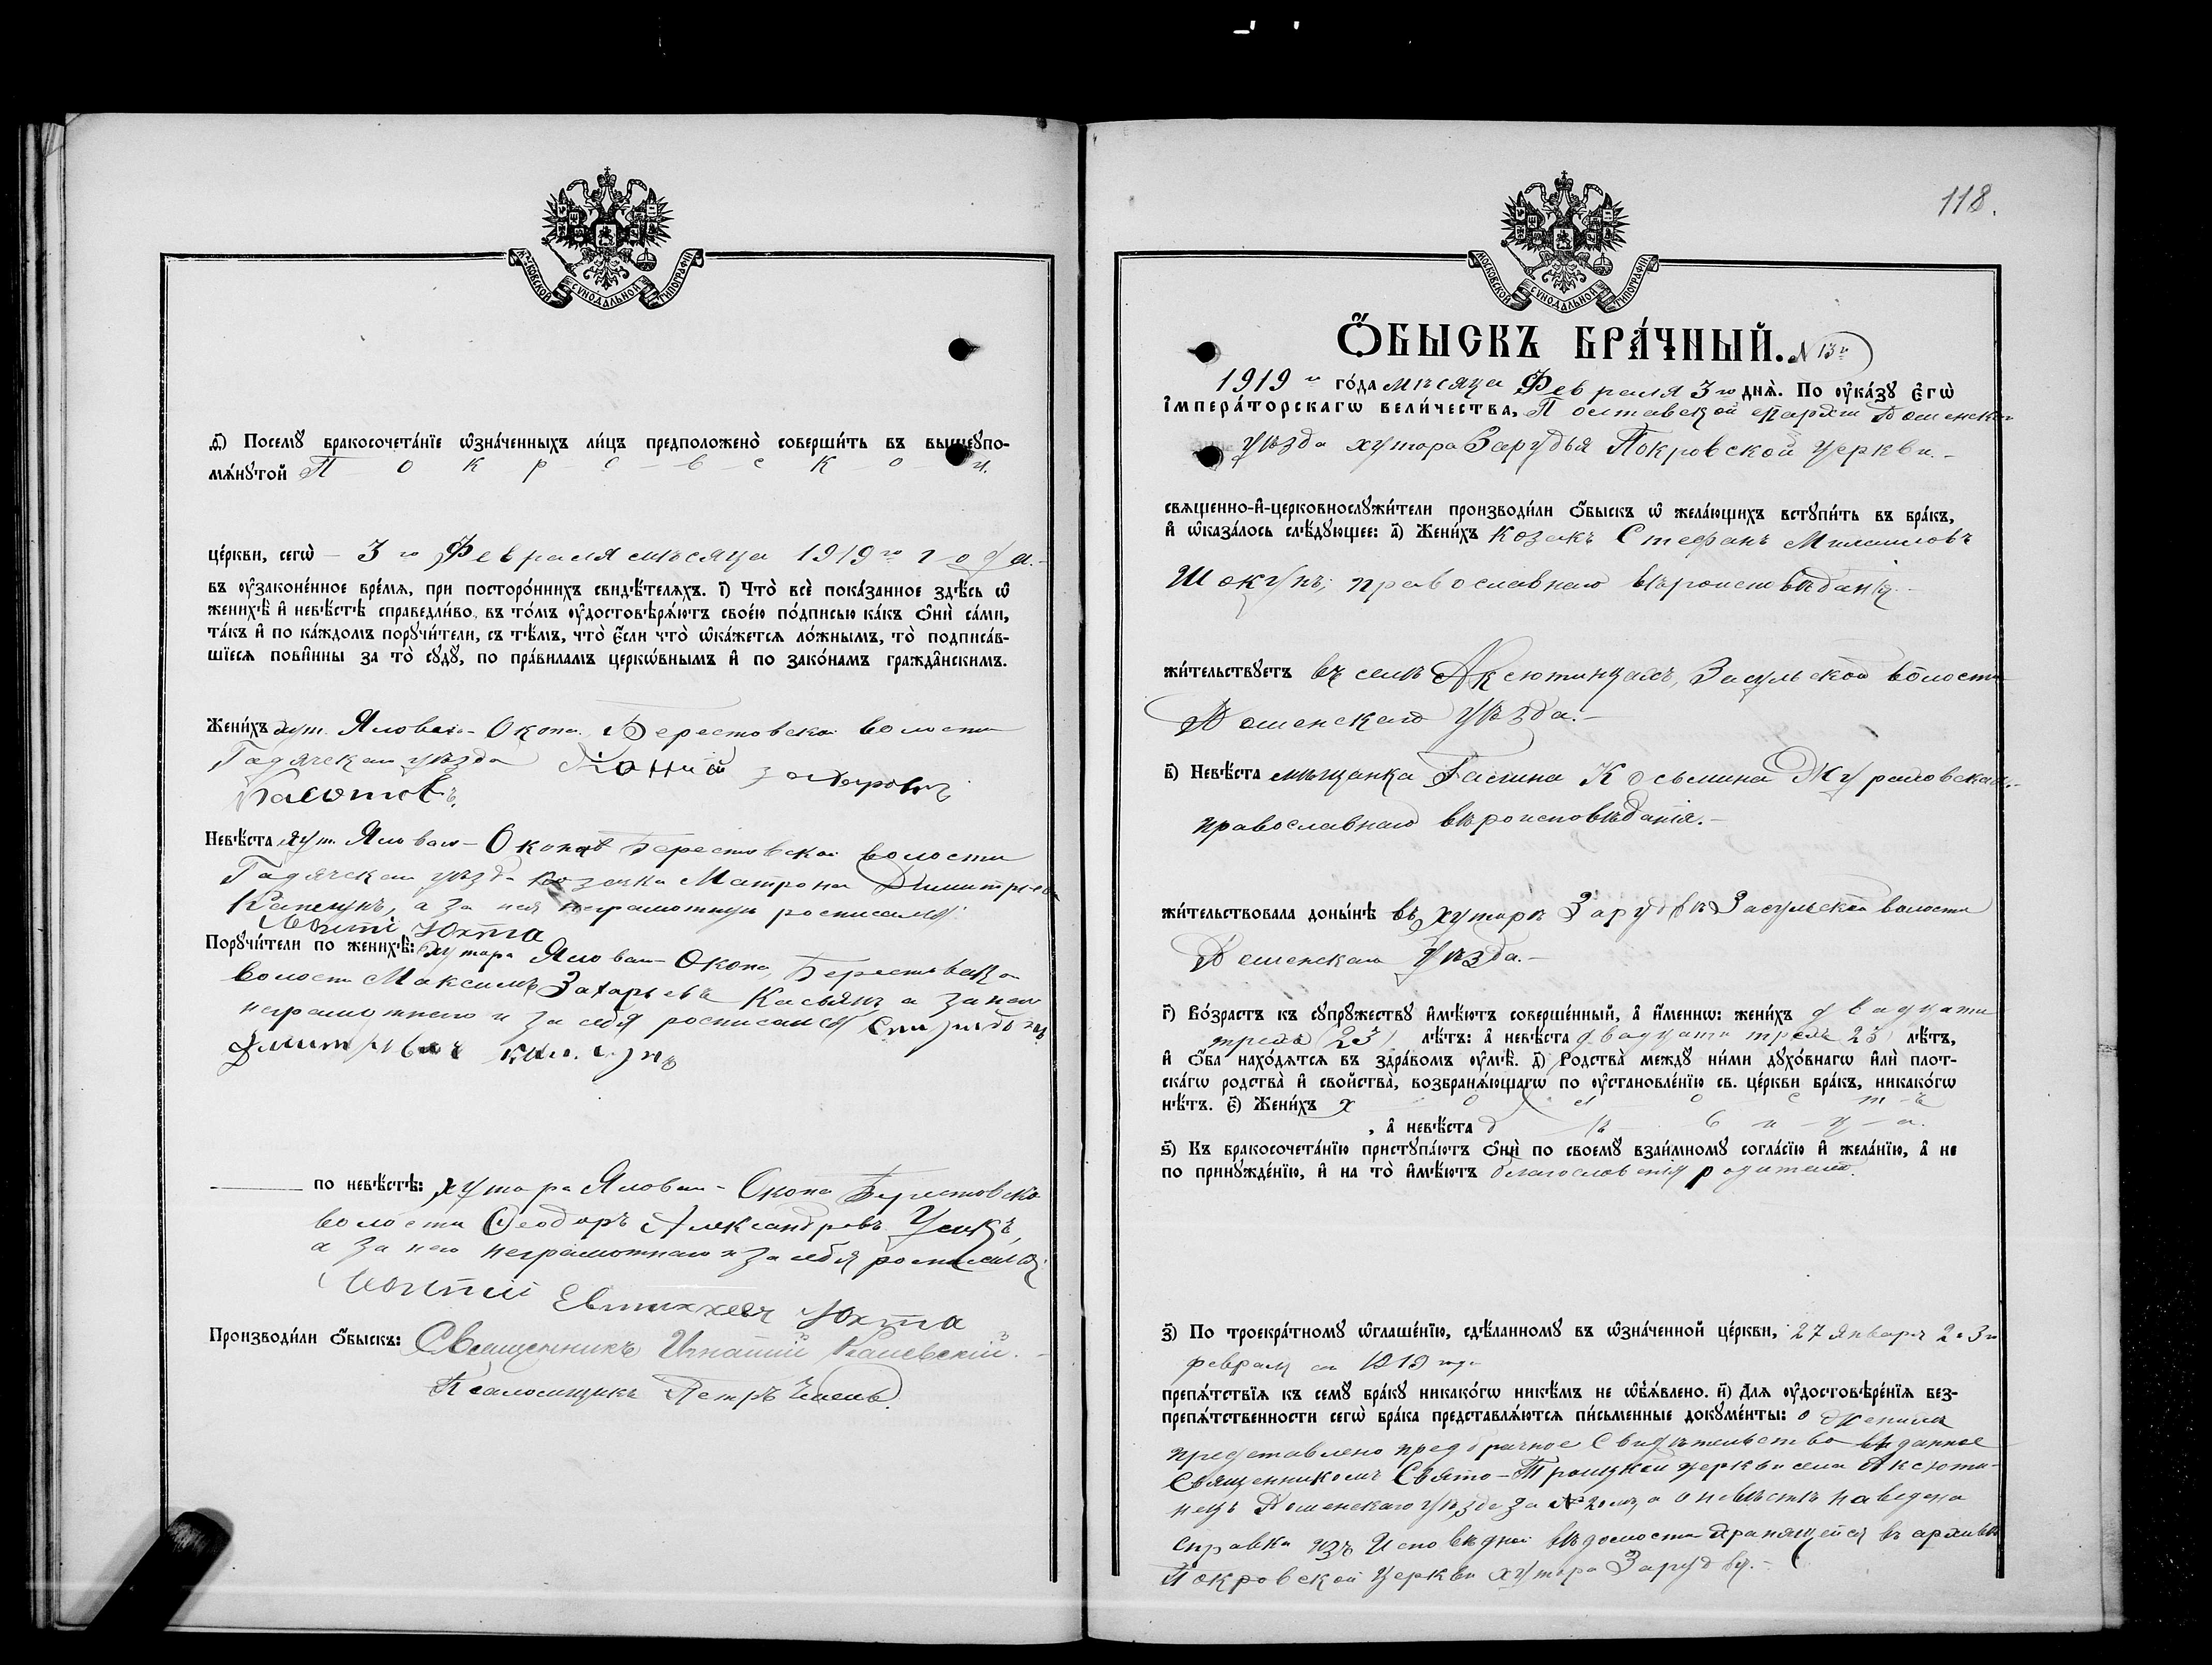 МОСКОВСКОЙ СУНОДАЛЬНОЙ ТИПОГРАФІИ
ѳ҃) Посемꙋ бракосочета́нїе ѡ҆зна́ченныхъ ли́цъ предположено̀ соверши́ть въ вышеꙋпо-
мѧ́нꙋтой П о к р о - в с к о й
це́ркви, сегѡ̀ - 3го Февраля мѣсяца 1919го года.-
въ ᲂу҆законе́нное вре́мѧ, при посторо́ннихъ свидѣ́телѧхъ. і҃) Что̀ всѐ пока́занное здѣ́сь ѡ҆
женихѣ̀ и҆ невѣ́стѣ справедли́во, въ то́мъ ᲂу҆достовѣрѧ́ютъ свое́ю по́дписью ка́къ ѻ҆нѝ са́ми,
та́къ и҆ по ка́ждомъ порꙋчи́тели, съ тѣ́мъ, что̀ є҆́сли что̀ ѡ҆ка́жетсѧ ло́жнымъ, то̀ подписа́в-
шїесѧ пови́нны за то̀ сꙋдꙋ̀, по пра́виламъ церкѡ́внымъ и҆ по зако́намъ гражда́нскимъ.
Жени́хъ хут. Ялового-Окопа, Берестовской волости
Гадячскаго уѣзда
Невѣ́ста хут. Ялового-Окопа Берестовской волости
Гадячскаго уѣзда козачка Матрона Димитріева
а за нея неграмотную росписался
Юхта
Порꙋчи́тели по женихѣ̀: хутора Ялового-Окопа, Берестовской
волости Максимъ Захарьевъ Касьянъ а за него
неграмотнаго и за себя росписался
по невѣ́стѣ: хутора Ялового-Окопа Берестовской
волости Ѳеодоръ Александровъ Усикъ,
а за него неграмотнаго и за себя росписался
Евтихіевъ Юхта
Производи́ли ѻ҆́быскъ: Священникъ Игнатій
Псаломщикъ Петръ
118.
МОСКОВСКОЙ СУНОДАЛЬНОЙ ТИПОГРАФІИ
Ѻ҆́БЫСКЪ БРА́ЧНЫЙ. N 13й
1919го го́да мѣсяца Февраля 3го днѧ̀. По ᲂу҆ка́зꙋ Є҆гѡ̀
І҆мпера́торскагѡ вели́чества, Полтавской епархіи Роменскаго
уѣзда хутора Зарудья Покровской церкви.-
свѧщенно-и҆-церковнослꙋжи́тели производи́ли ѻ҆́быскъ ѡ҆ жела́ющихъ встꙋпи́ть въ бра́къ,
и҆ ѡ҆каза́лось слѣ́дꙋющее: а҃) Жени́хъ козакъ Стефанъ Михаиловъ
Шокунъ, православнаго вѣроисповѣданія.-
жи́тельствꙋетъ въ селѣ Аксютинцахъ, Засульской волости
Роменскаго уѣзда.-
в҃) Невѣ́ста мѣщанка Галина Косьмина Журавовская.-
православнаго вѣроисповѣданія.-
жи́тельствовала доны́нѣ въ хуторѣ Зарудьѣ Засульской волости
Роменскаго уѣзда.-
г҃) Во́зрастъ къ сꙋпрꙋ́жествꙋ и҆мѣ́ютъ соверше́нный, а҆ и҆́меннѡ: жени́хъ двадцати
трехъ (23) лѣ́тъ: а҆ невѣ́ста двадцати трехъ 23) лѣ́тъ,
и҆ ѻ҆́ба нахо́дѧтсѧ въ здра́вомъ ᲂу҆мѣ̀. д҃) Родства̀ междꙋ ни́ми дꙋхо́внагѡ и҆лѝ плот-
ска́гѡ родства̀ и҆ сво́йства, возбранѧ́ющагѡ по ᲂу҆становле́нїю св. це́ркви бра́къ, никако́гѡ
нѣ́тъ. є҃) Жени́хъ х о л о с т ъ
, а҆ невѣ́ста д ѣ в и ц а.
ѕ҃) Къ бракосочета́нїю пристꙋпа́ютъ ѻ҆нѝ по своемꙋ̀ взаи́мномꙋ согла́сїю и҆ жела́нїю, а҆ не
по принꙋжде́нїю, и҆ на то̀ и҆мѣ́ютъ благословенія родителей.
з҃) По троекра́тномꙋ ѡ҆глаше́нїю, сдѣ́ланномꙋ въ ѡ҆зна́ченной це́ркви, 27 января 2 и 3го
февраля 1919 года
препѧ́тствїѧ къ семꙋ̀ бра́кꙋ никако́гѡ никѣ́мъ не ѡ҆б̾ѧ́влено. и҃) Длѧ ᲂу҆достовѣре́нїѧ без-
препѧ́тственности сегѡ̀ бра́ка представлѧ́ютсѧ пи́сьменные докꙋме́нты: о женихѣ
представлено предбрачное Свидѣтельство выданное
Священникомъ Свято-Троицкой церкви села Аксюти-
нецъ Роменскаго уѣзда за № а о невѣстѣ наведена
справка изъ Исповѣдной вѣдомости хранящейся въ архивѣ
Покровской церкви хутора Зарудья.-